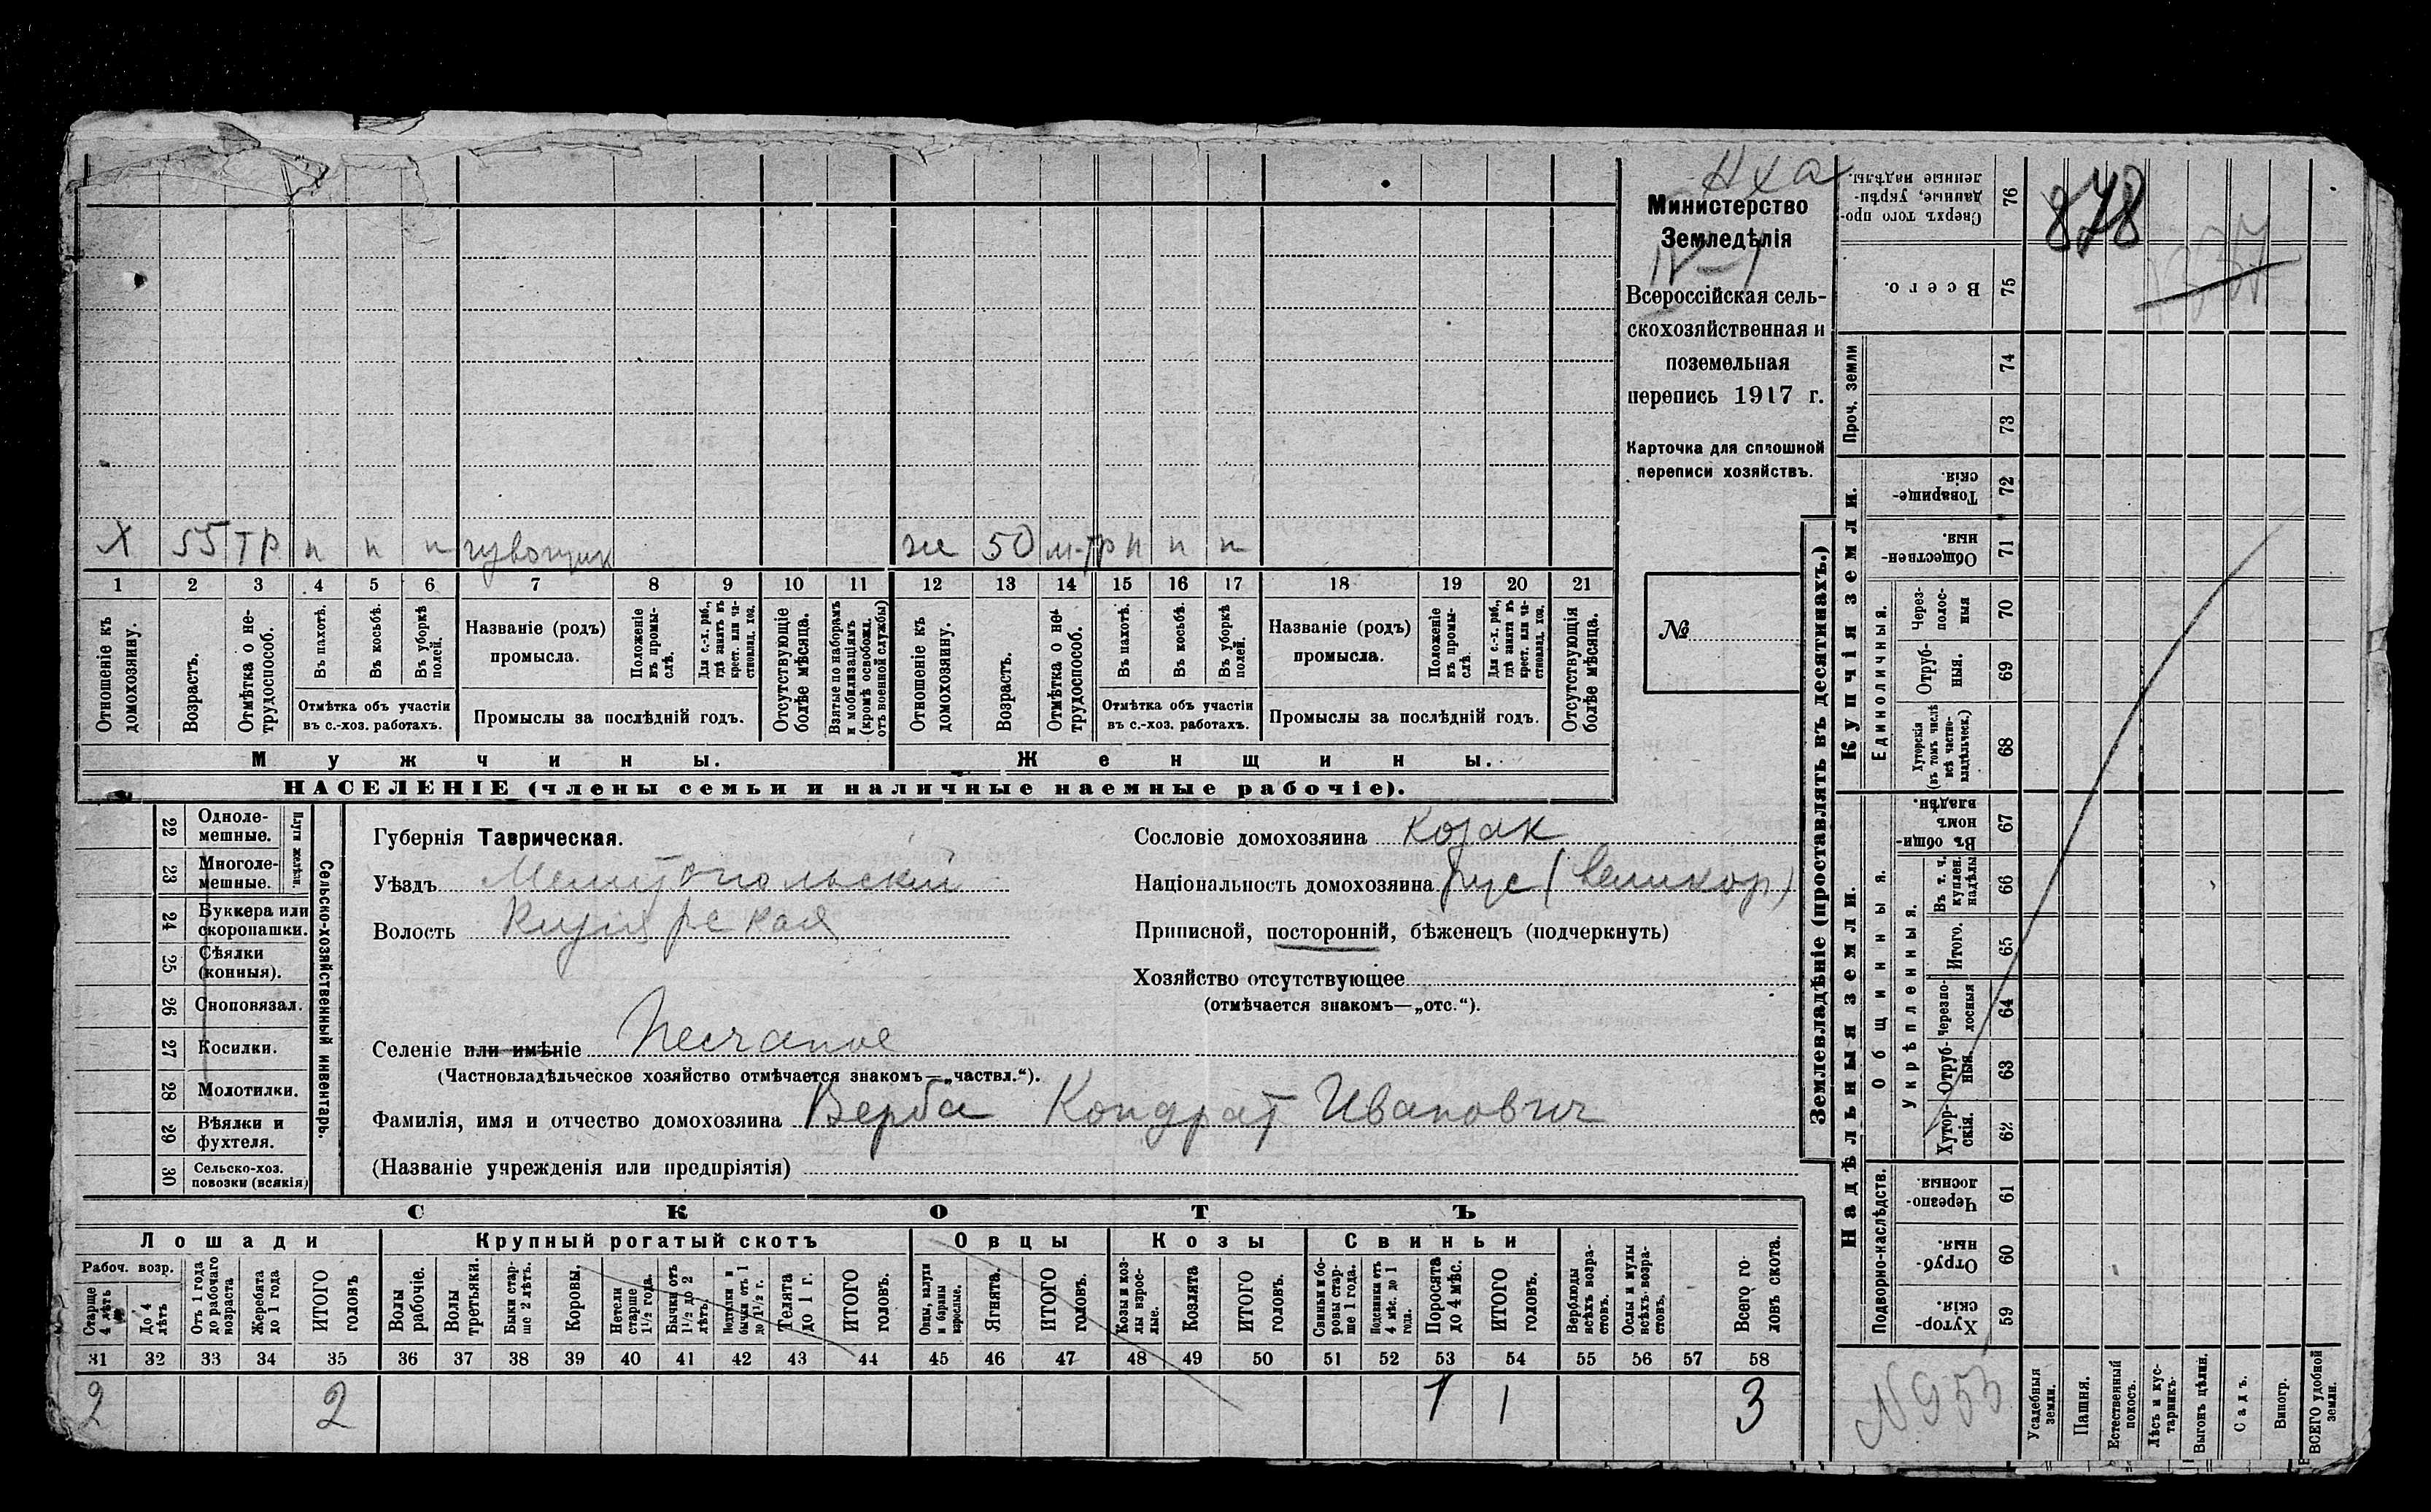 Министерство
Земледѣлія
IV-1
Всероссійская сель-
скохозяйственная и
поземельная
перепись 1917 г.
Карточка для сплошной
переписи хозяйствъ.
№
Х 55 тр п п п
же 50 п п п
1 2 3 4 5 6 7 8 9 10 11 12 13 14 15 16 17 18 19 20 21
Отношеніе къ домохозяину.
Возрастъ.
Отмѣтка о не-трудоспособ.
Въ пахотѣ.
Въ косьбѣ.
Въ уборкѣ полей.
Отмѣтка объ участіи
въ с.-хоз. работахъ.
Названіе (родъ)
промысла.
Положеніе въ промы-слѣ.
Для с.-х. раб., гдѣ занятъ въ крест. или ча-стновлад. хоз.
Промыслы за послѣдній годъ.
Отсутствующіе болѣе мѣсяца.
Взятые по наборамъ и мобилизаціямъ (кромѣ освобожд. отъ военной службы)
Отношеніе къ домохозяину.
Возрастъ.
Отмѣтка о не-трудоспособ.
Въ пахотѣ.
Въ косьбѣ.
Въ уборкѣ полей.
Отмѣтка объ участіи
въ с.-хоз. работахъ.
Названіе (родъ)
промысла.
Положеніе въ промы-слѣ.
Для с.-х. раб., гдѣ занята въ крест. или ча-стновлад. хоз.
Промыслы за послѣдній годъ.
Отсутствующія болѣе мѣсяца.
Мужчины.
Женщины.
НАСЕЛЕНІЕ (члены семьи и наличные наемные рабочіе).
Сельско-хозяйственный инвентарь.
Плуги желѣзн.
22 Одноле-мешные.
23 Многоле-мешные.
24 Буккера или скоропашки.
25 Сѣялки (конныя).
26 Сноповязал.
27 Косилки.
28 Молотилки.
29 Вѣялки и фухтеля.
30 Сельско-хоз. повозки (всякія)
Губернія Таврическая.
Уѣздъ Мелитопольскій
Волость
Селеніе или имѣніе Песчаное
(Частновладѣльческое хозяйство отмѣчается знакомъ—„частвл.“).
Фамилія, имя и отчество домохозяина Верба Кондрат Иванович
(Названіе учрежденія или предпріятія)
Сословіе домохозяина козак
Національность домохозяина рус (великор)
Приписной, посторонній, бѣженецъ (подчеркнуть)
Хозяйство отсутствующее
(отмѣчается знакомъ—„отс.“).
СКОТЪ
Лошади
Крупный рогатый скотъ
Овцы
Козы
Свиньи
Рабоч. возр.
Старше 4 лѣтъ
До 4 лѣтъ
Отъ 1 года до рабочаго возраста
Жеребята до 1 года
ИТОГО головъ
Волы рабочіе.
Волы третьяки.
Быки стар-ше 2 лѣтъ.
Коровы.
Нетели старше 1½ года.
Бычки отъ 1½ до 2 лѣтъ.
Подтелки и бычки отъ 1 до 1½ г.
Телята до 1 г.
ИТОГО головъ.
Овцы, валухи и бараны взрослые.
Ягнята.
ИТОГО головъ.
Козы и коз-лы взрос-лые.
Козлята
ИТОГО головъ.
Свиньи и бо-ровы стар-ше 1 года.
Подсвинки отъ 4 мѣс. до 1 года.
Поросята до 4 мѣс.
ИТОГО головъ.
Верблюды всѣхъ возра-стовъ.
Ослы и мулы всѣхъ возра-стовъ.
Всего го-ловъ скота.
31 32 33 34 35 36 37 38 39 40 41 42 43 44 45 46 47 48 49 50 51 52 53 54 55 56 57 58
2 2 1 1 3
Землевладѣніе (проставлять въ десятинахъ.)
Купчія земли.
Надѣльныя земли.
Проч. земли
Единоличныя.
Общинныя.
Укрѣпленныя.
Подворно-наслѣдств.
76 Сверхъ того про-данные, укрѣп-ленные надѣлы.
75 Всего.
74
73
72 Товарище-скія
71 Обществен-ныя.
70 Через-полос-ныя
69 Отруб-ныя.
68 Хуторскія (въ томъ числѣ всѣ частно-владѣльческ.)
67 Въ общин-номъ владѣн.
66 Въ т. ч. куплен. надѣлы
65 Итого.
64 Черезпо-лосныя
63 Отруб-ныя.
62 Хутор-скія.
61 Черезпо-лосныя.
60 Отруб-ныя.
59 Хутор-скія.
Усадебныя земли.
Пашня.
Естественный покосъ.
Лѣсъ и кус-тарникъ.
Выгонъ цѣлин.
Садъ.
Виногр.
ВСЕГО удобной земли.
878
N 953